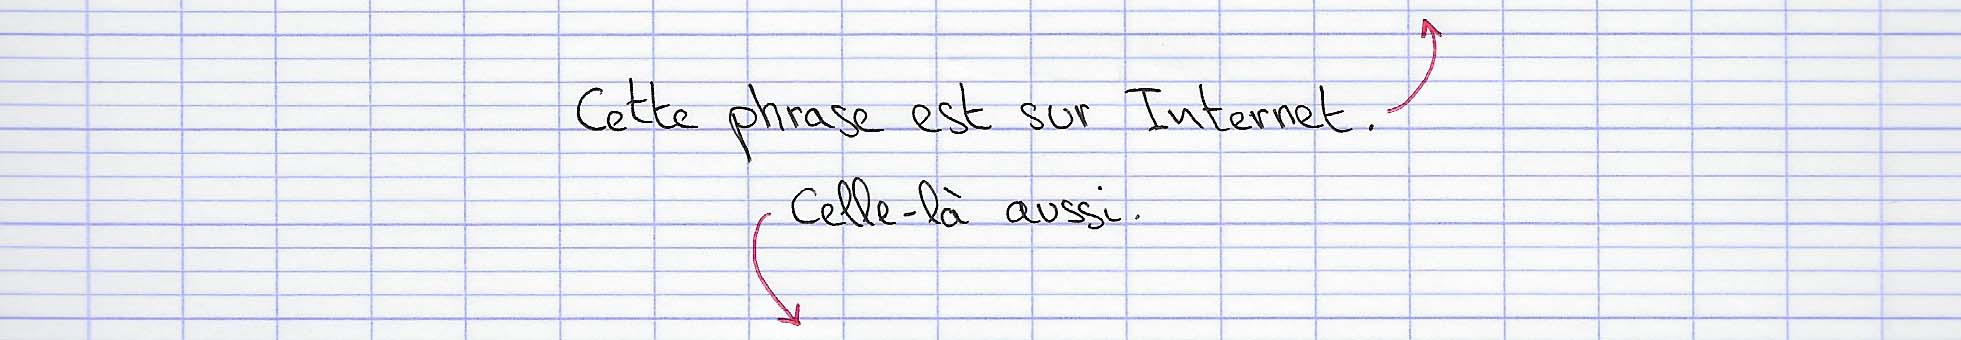 Cette phrase est sur Internet.
Celle-là aussi.